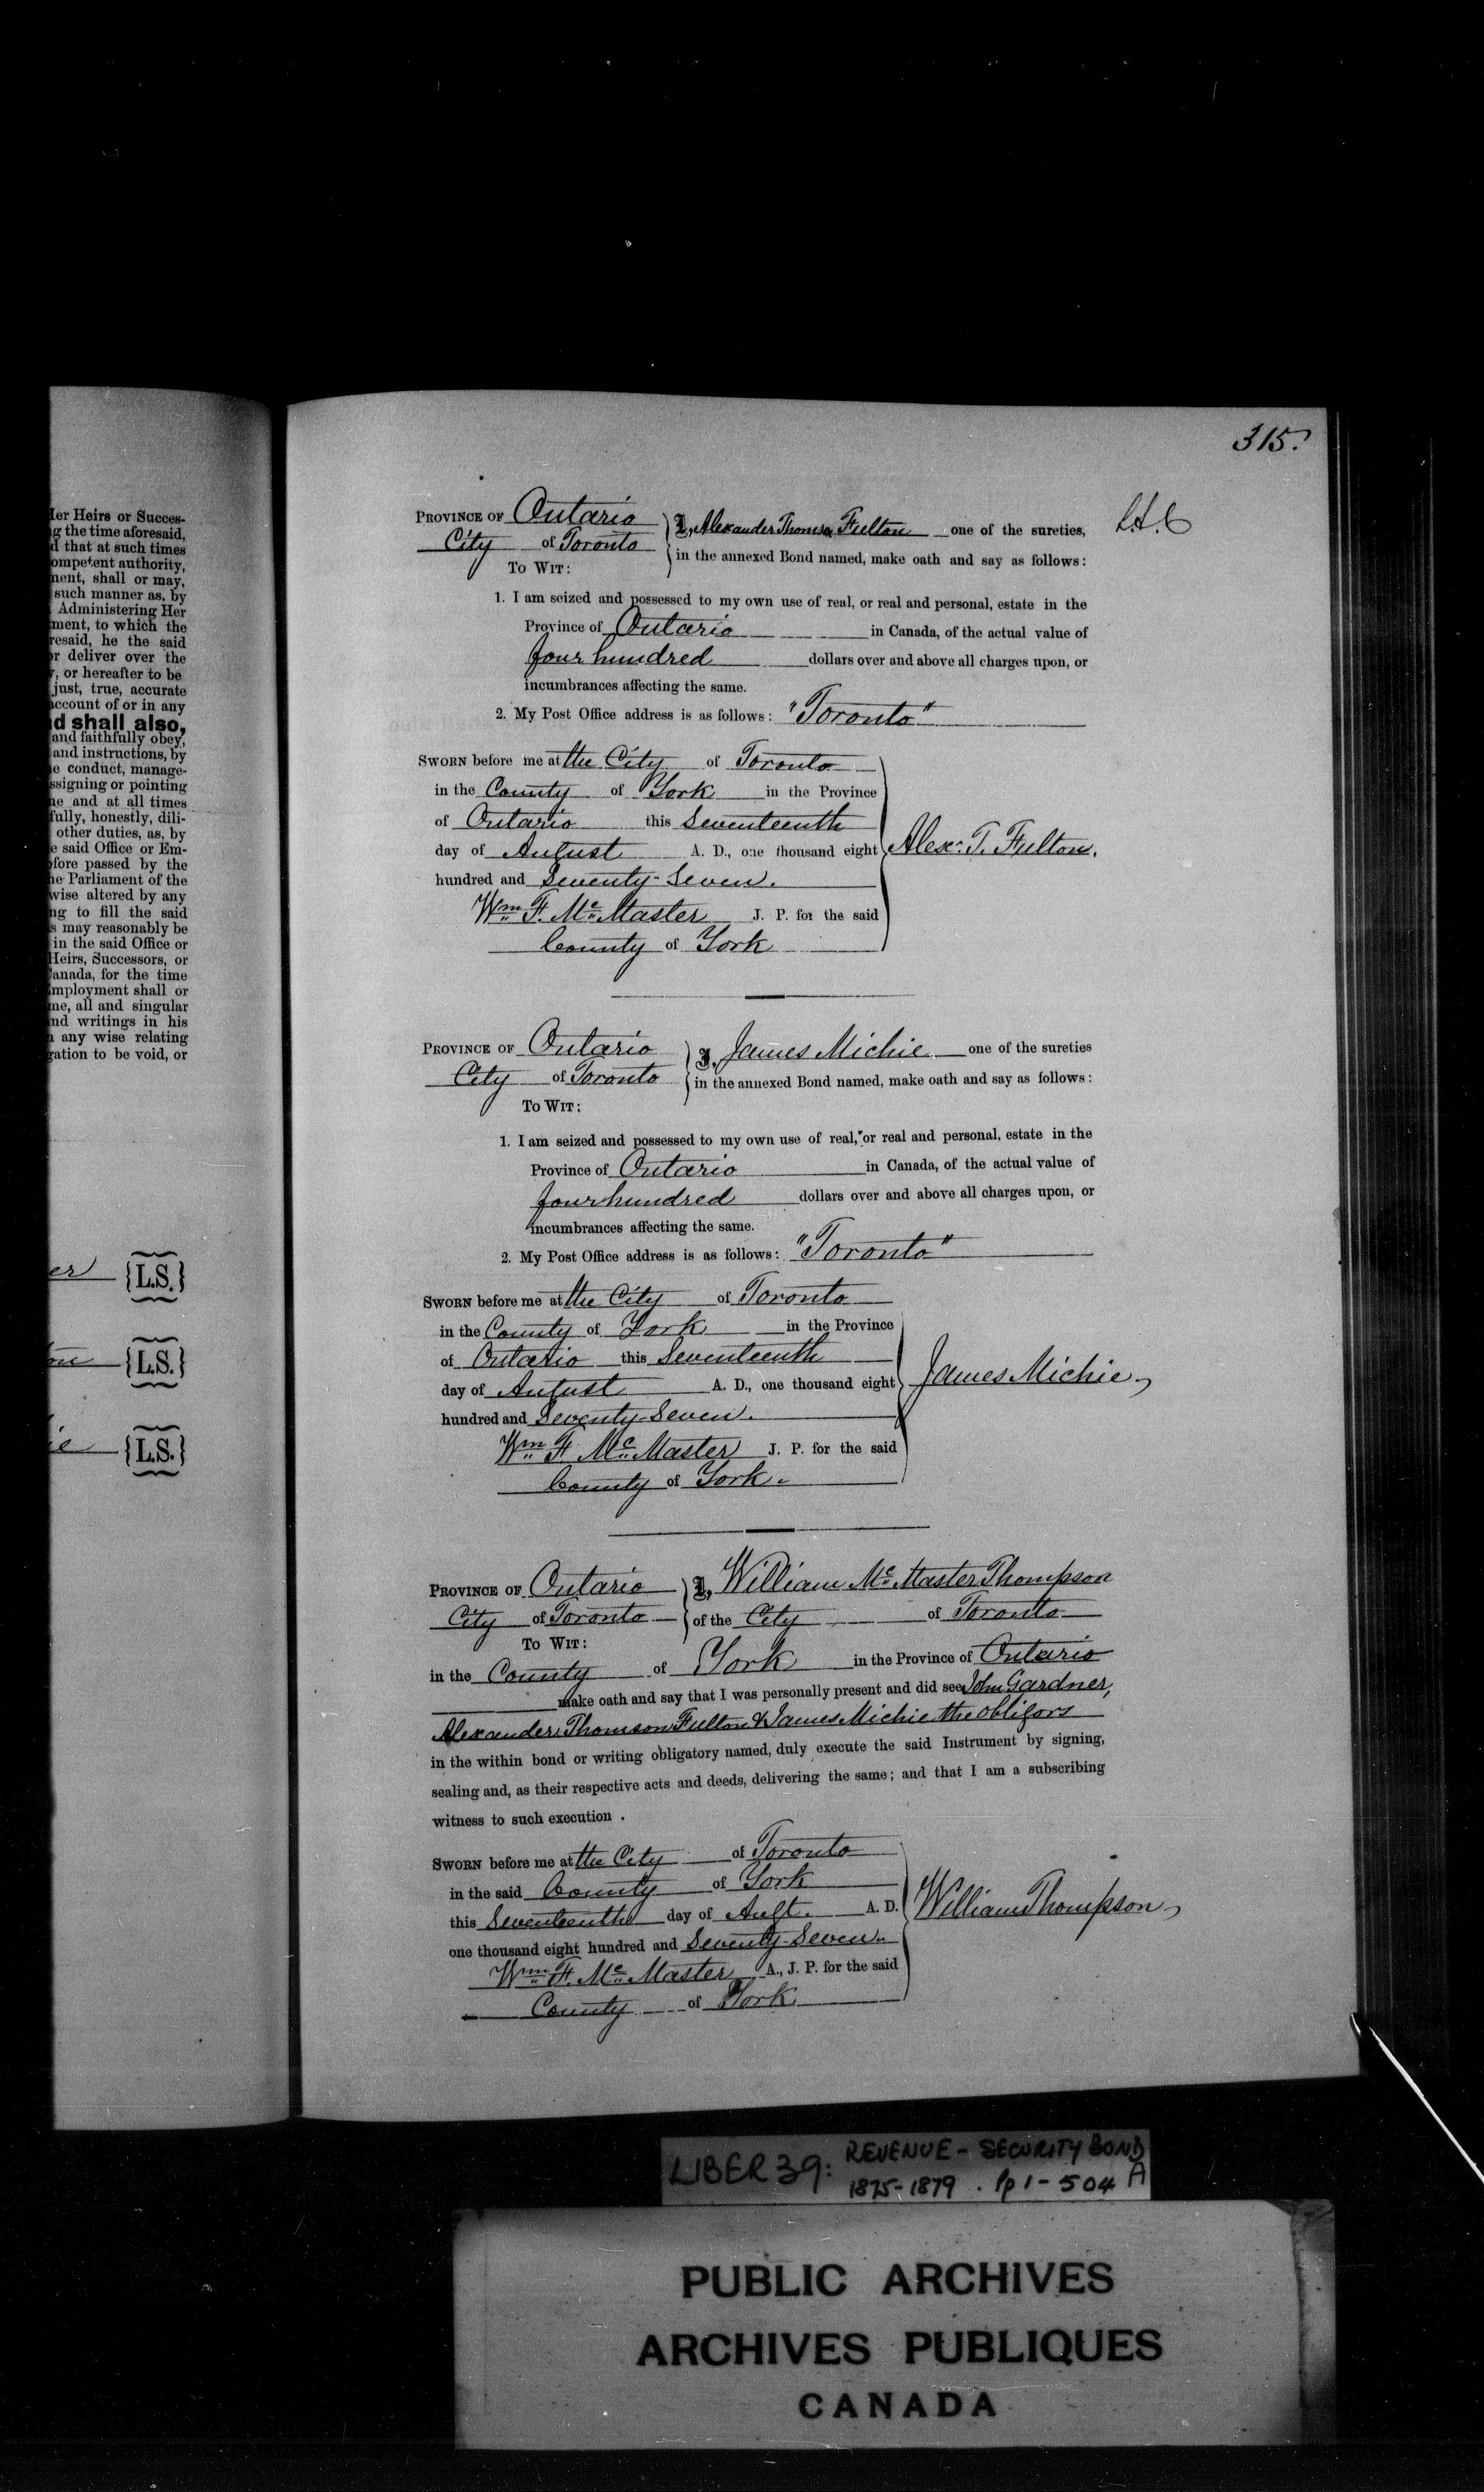 Her Heirs or Succes-
g the time aforesaid,
d that at such times
ompetent authority,
ment, shall or may,
such manner as, by
Administering Her
ment, to which the
resaid, he the said
or deliver over the
, or hereafter to be
just, true, accurate
account of or in any
d shall also,
and faithfully obey,
and instructions, by
e conduct, manage-
ssigning or pointing
ne and at all times
fully, honestly, dili-
other duties, as, by
e said Office or Em-
ofore passed by the
he Parliament of the
wise altered by any
ng to fill the said
s may reasonably be
in the said Office or
Heirs, Successors, or
Canada, for the time
mployment shall or
me, all and singular
nd writings in his
n any wise relating
gation to be void, or
er {L.S.}
on {L.S.}
ie {L.S.}
315.
PROVINCE OF Ontario } I, Alexander Thomson Fulton one of the sureties,
City of Toronto in the annexed Bond named, make oath and say as follows:
TO WIT:
1. I am seized and possessed to my own use of real, or real and personal, estate in the
Province of Ontario in Canada, of the actual value of
four hundred dollars over and above all charges upon, or
incumbrances affecting the same.
2. My Post Office address is as follows: "Toronto"
SWORN before me at the City of Toronto
in the County of York in the Province
of Ontario this Seventeenth
day of August A. D., one thousand eight Alexr. T. Fulton.
hundred and Seventy-Seven.
Wm F. McMaster J. P. for the said
County of York
PROVINCE OF Ontario } I, James Michie one of the sureties
City of Toronto in the annexed Bond named, make oath and say as follows:
TO WIT:
1. I am seized and possessed to my own use of real, or real and personal, estate in the
Province of Ontario in Canada, of the actual value of
four hundred dollars over and above all charges upon, or
incumbrances affecting the same.
2. My Post Office address is as follows: "Toronto"
SWORN before me at the City of Toronto
in the County of York in the Province
of Ontario this Seventeenth
day of August A. D., one thousand eight James Michie
hundred and Seventy-Seven.
Wm F. McMaster J. P. for the said
County of York.
PROVINCE OF Ontario } I, William McMaster Thompson
City of Toronto of the City of Toronto
TO WIT:
in the County of York in the Province of Ontario
make oath and say that I was personally present and did see John Gardner,
Alexander Thomson Fulton & James Michie the obligors
in the within bond or writing obligatory named, duly execute the said Instrument by signing,
sealing and, as their respective acts and deeds, delivering the same; and that I am a subscribing
witness to such execution.
SWORN before me at the City of Toronto
in the said County of York
this Seventeenth day of Augt. A. D. William Thompson
one thousand eight hundred and Seventy-Seven.
Wm F. McMaster A., J. P. for the said
County of York
LIBER 39: REVENUE - SECURITY BOND
1875-1879 . Pp 1-504 A
PUBLIC ARCHIVES
ARCHIVES PUBLIQUES
CANADA